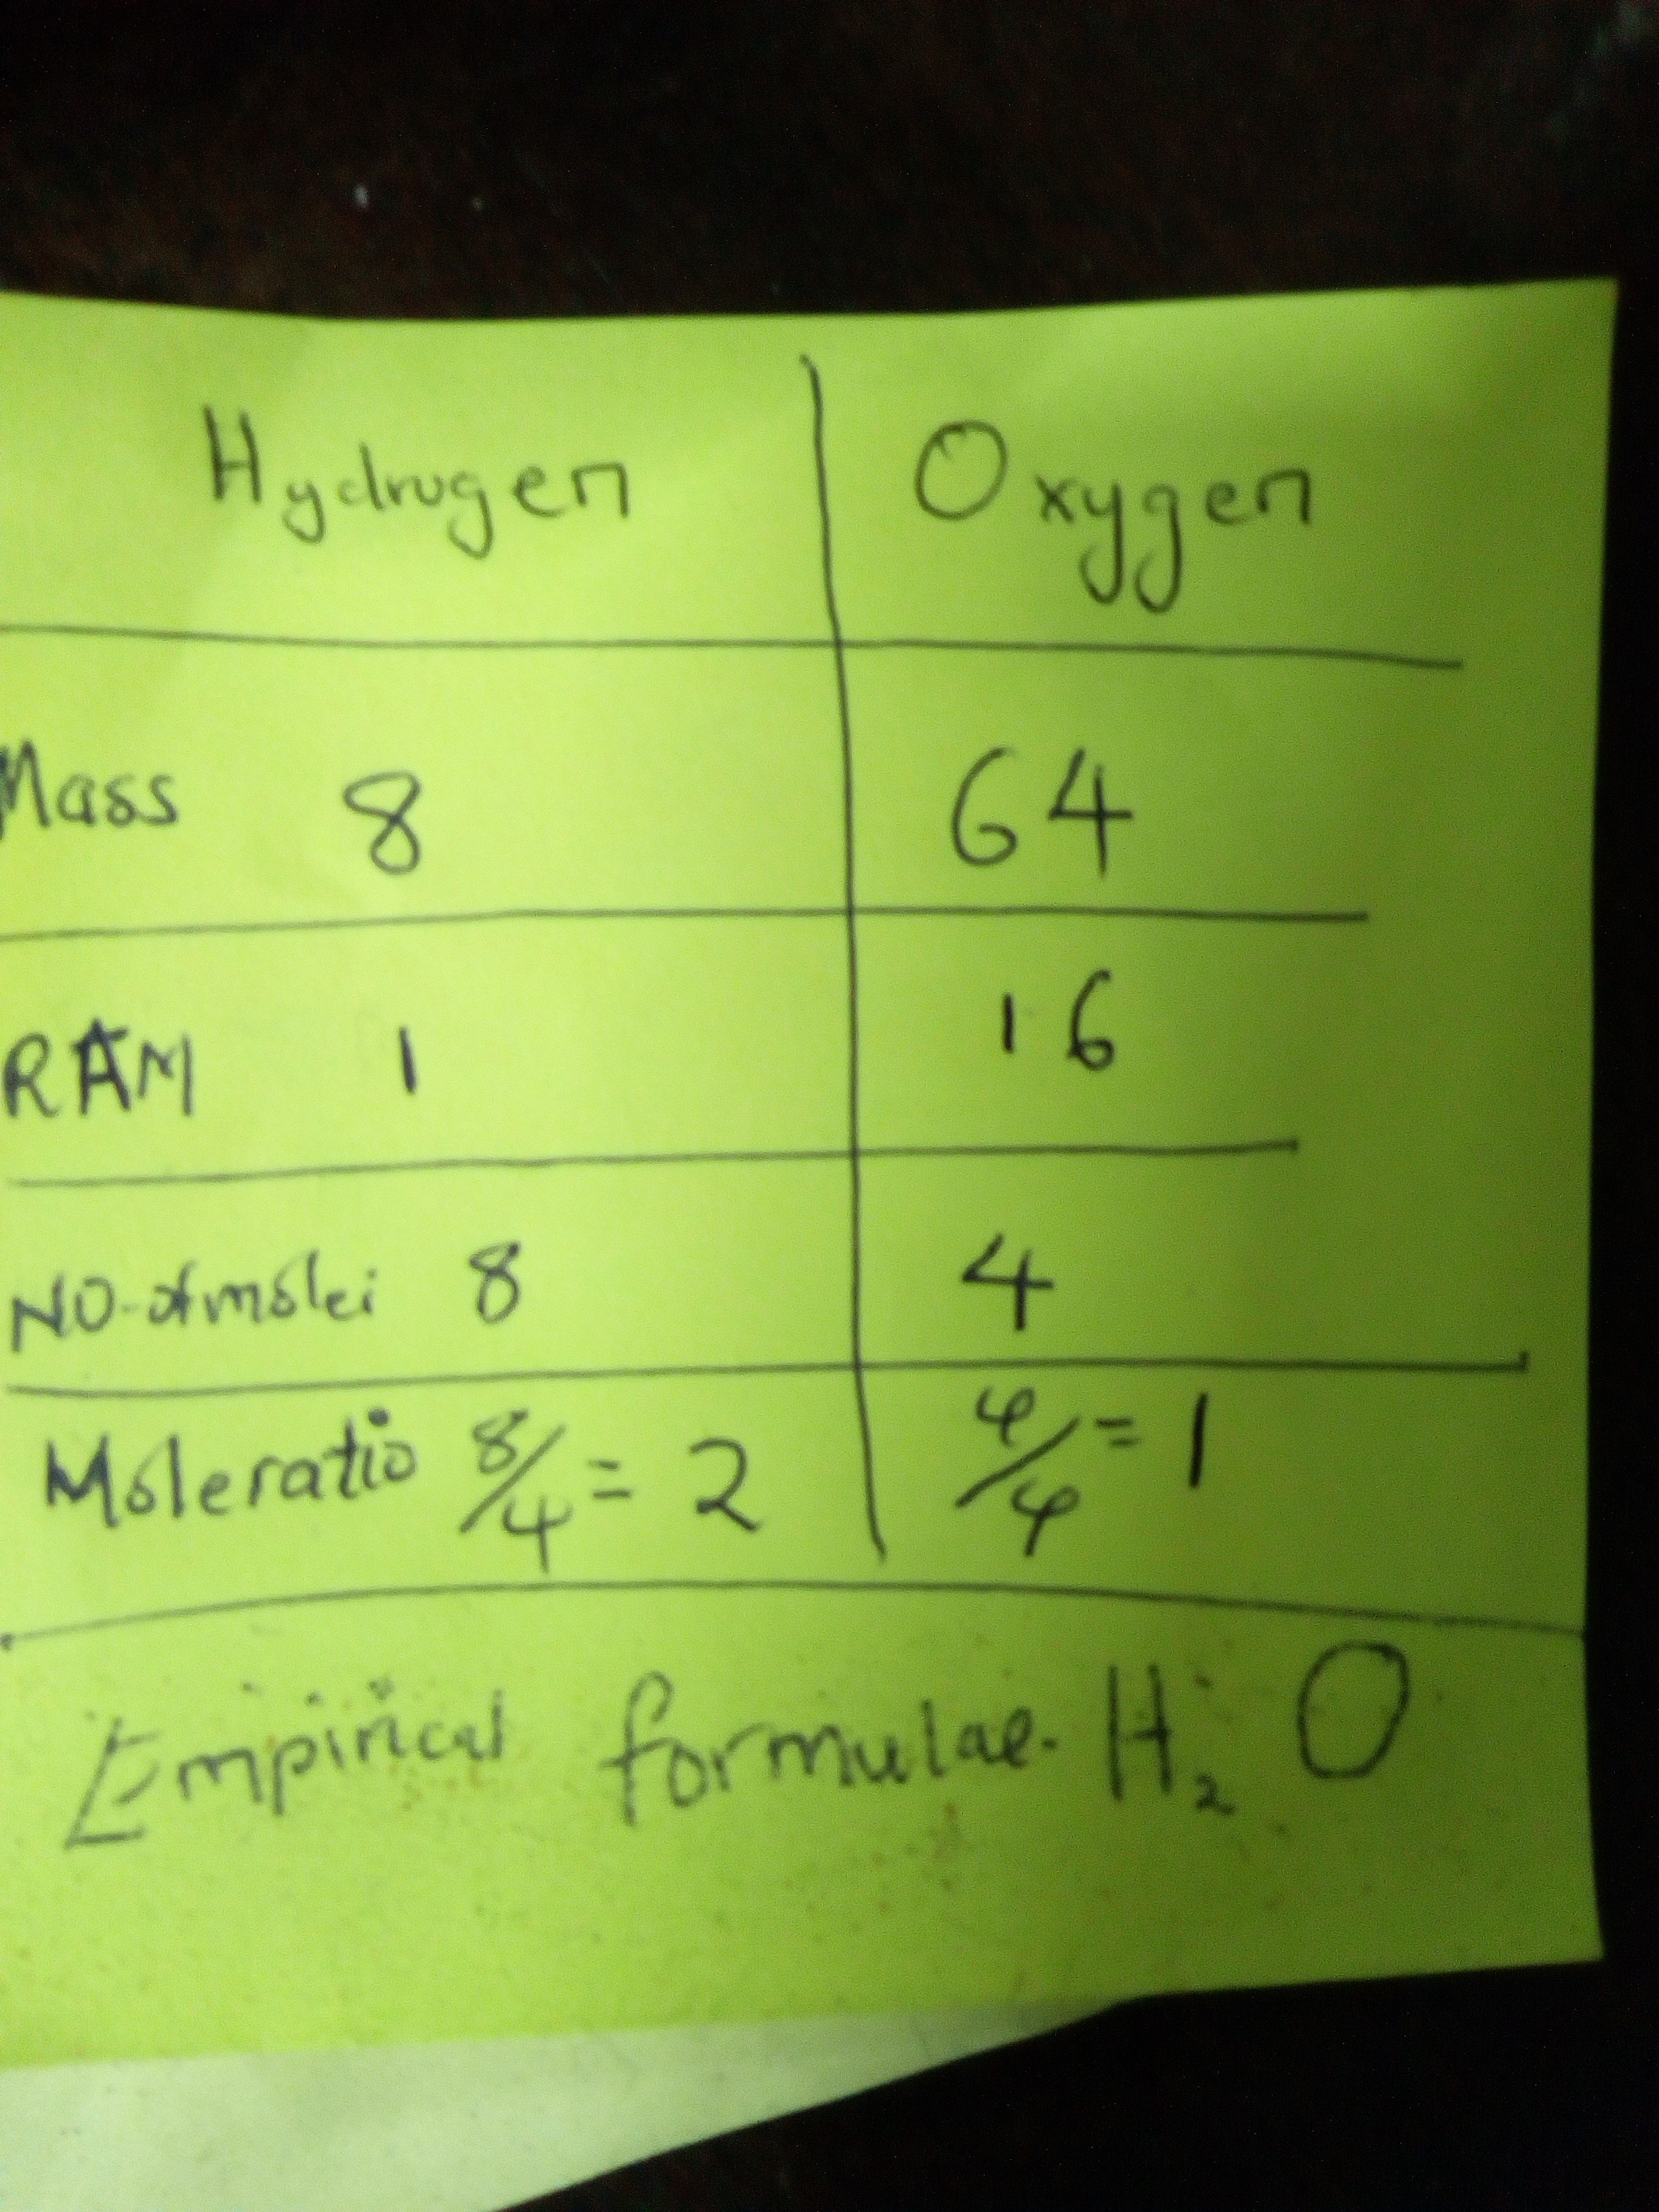 Hydrogen Oxygen
Mass 8 64
RAM 1 16
NO-of moles 8 4
Moleratio 8/4 = 2 4/4 = 1
Empirical formulae. H₂ O